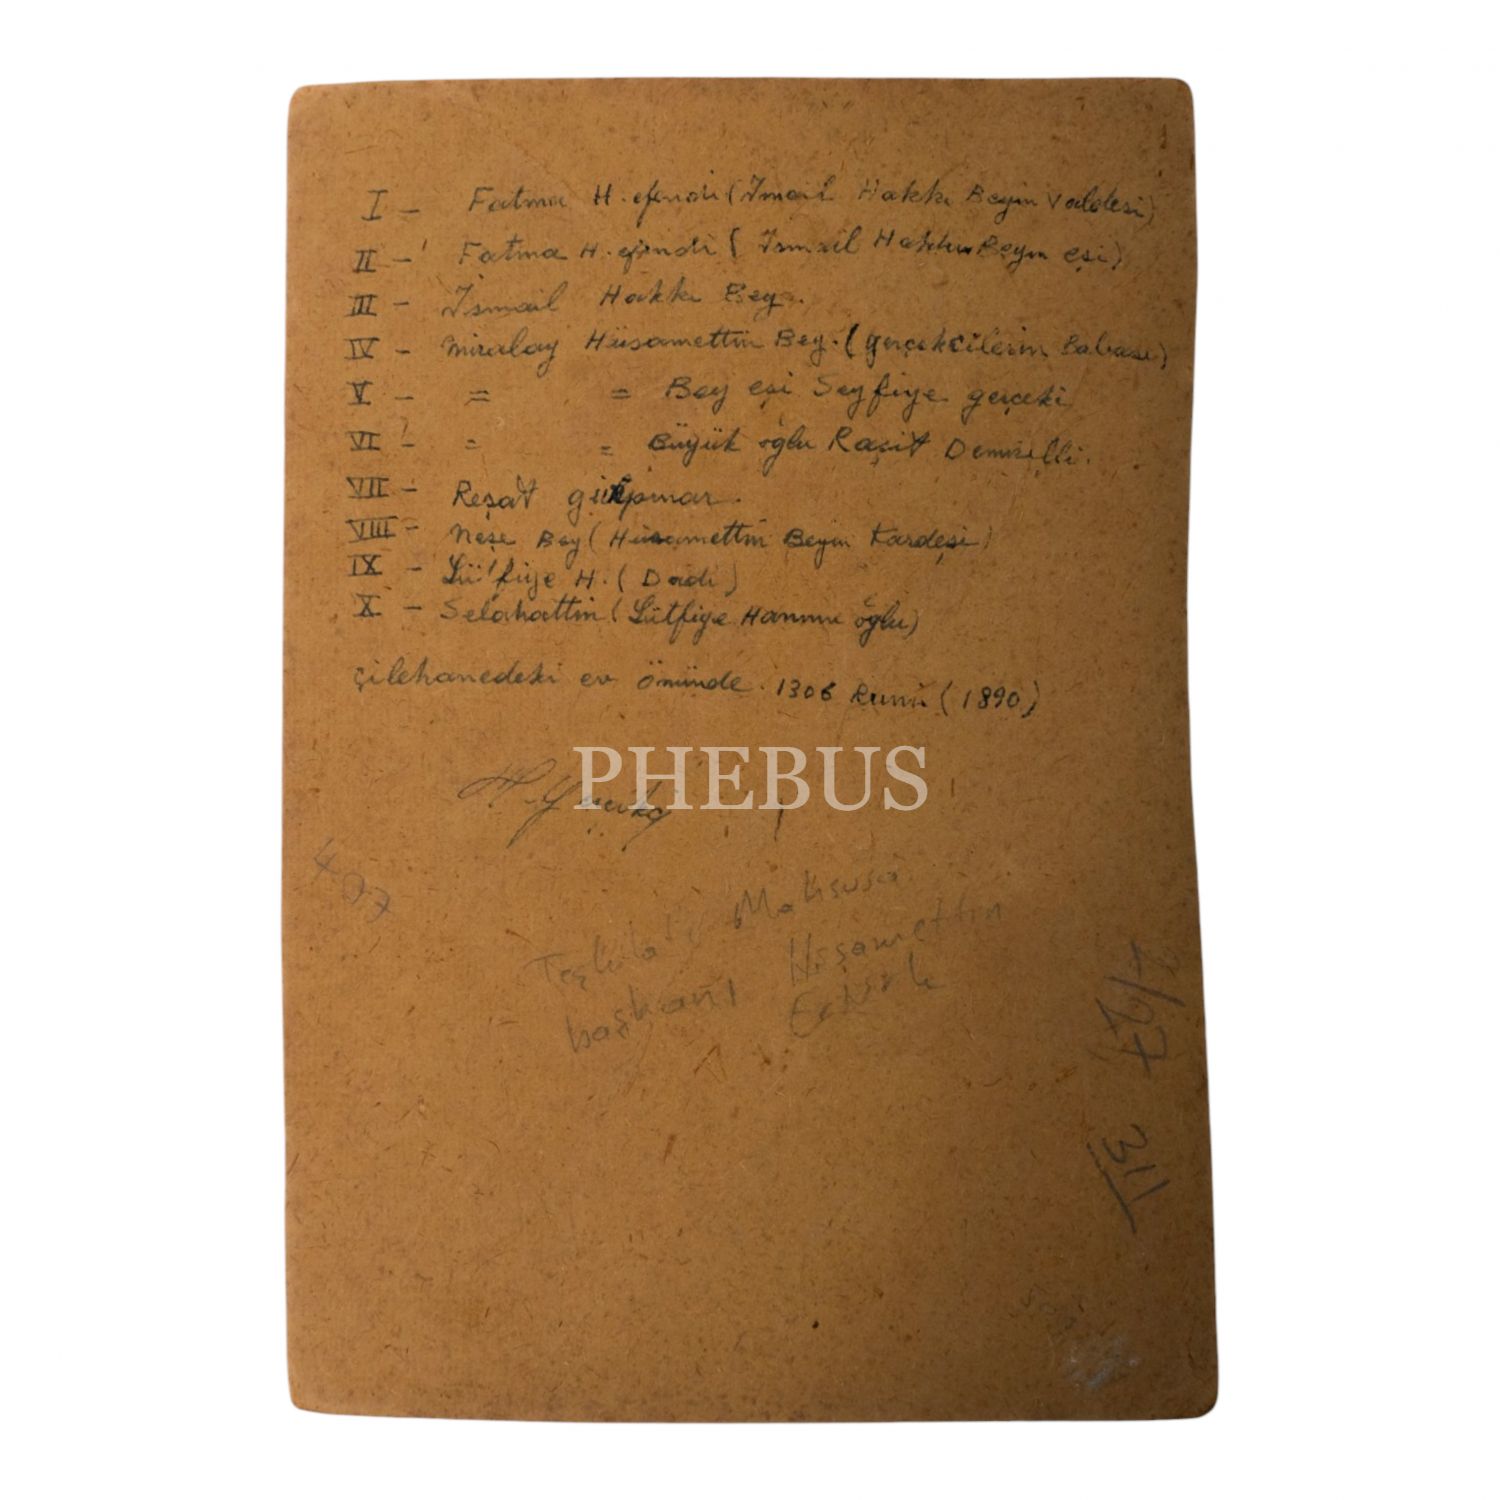 I - Fatma H. efendi (İmail Hakkı Beyin Valdesi)
II - Fatma H. efendi ( İsmail Hakkı Beyin eşi)
III - İsmail Hakkı Bey.
IV - Miralay Hüsamettin Bey. (gerçekcilerin Babası)
V - = = Bey eşi Seyfiye gerçeki
VI - = = Büyük oğlu Raşit Demirelli.
VII - Reşat
VIII - Neşe Bey (Hüsamettin Beyin Kardeşi)
IX - Lütfiye H. ( Dadı )
X - Selahattin (Lütfiye Hanımın oğlu)
çilehanedeki ev önünde. 1306 Rumi (1890)
PHEBUS
407
Teşkilatı Mahsusa
başkanı Hüsamettin
Ertürk
311